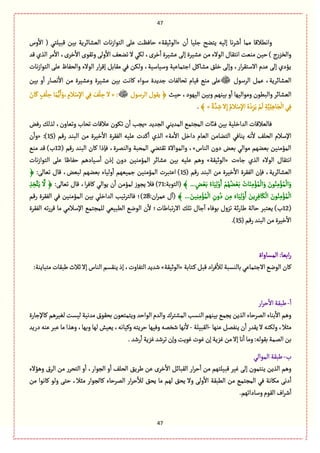 47
وانطلاقا مما أشرنا إليه يتضح جليا أن «الوثيقة» حافظت على التوازنات العشائرية بين قبيلتي ( الأوس
والخزرج ) حين منعت انتقال الولاء من عشيرة إلى عشيرة أخرى، لكي لا تضعف الأولى وتقوى الأخرى، الأمر الذي قد
يؤدي إلى عدم الاستقرار، وإلى خلق مشاكل اجتماعية وسياسية، ولكن في مقابل إقرار الولاء والحفاظ على التوازنات
العشائرية، عمل الرسول ﷺ على منع قيام تحالفات جديدة سواء كانت بين عشيرة وعشيرة من الأنصار أو بين
العشائر والبطون ومواليها أو بينهم وبين اليهود، حيث ﴿ يقول الرسول ﷺ: « لَا حِلْفَ فِي الإِسْلَامِ، وَأَيُّمَا حِلْفٍ كَانَ
فِي الْجَاهِلِيَّةِ لَمْ يَزِدْهُ الإِسْلَامُ إِلَّا شِدَّةً » ﴾ .
فالعلاقات الداخلية بين فئات المجتمع المديني الجديد، «يجب أن تكون علاقات تحاب وتعاون، لذلك رفض
الإسلام الحلف لأنه ينافي التضامن العام داخل الأمة» الذي أكدت عليه الفقرة الأخيرة من البند رقم (15): «وأن
المؤمنين بعضهم موالي بعض دون الناس»، والموالاة تقتضي المحبة والنصرة، فإذا كان البند رقم (12ب) قد منع
انتقال الولاء الذي جاءت «الوثيقة» وهم عليه بين عشائر المؤمنين دون إذن أسيادهم حفاظا على التوازنات
العشائرية، فإن الفقرة الأخيرة من البند رقم (15) اعتبرت المؤمنين جميعهم أولياء بعضهم لبعض، قال تعالى: ﴿
وَالْمُؤْمِنُونَ وَالْمُؤْمِنَاتُ بَعْضُهُمْ أَوْلِيَاءُ بَعْضٍ... ﴾ (التوبة:71) فلا يجوز لمؤمن أن يوالي كافرا، قال تعالى: ﴿ لَا يَتَّخِذِ
الْمُؤْمِنُونَ الْكَافِرِينَ أَوْلِيَاءَ مِنْ دُونِ الْمُؤْمِنِينَ... ﴾ (آل عمران:28)؛ فالترتيب الداخلي بين المؤمنين في الفقرة رقم
(12ب) يعتبر حالة طارئة تزول بوفاء آجال تلك الارتباطات ؛ لأن الوضع الطبيعي للمجتمع الإسلامي ما قررته الفقرة
الأخيرة من البند رقم (15).
رابعا: المساواة
كان الوضع الاجتماعي بالنسبة للأفراد قبل كتابة «الوثيقة» شديد التفاوت، إذ ينقسم الناس إلا ثلاث طبقات متباينة:
أ- طبقة الأحرار
وهم الأبناء الصرحاء الذين يجمع بينهم النسب المشترك والدم الواحد ويتمتعون بحقوق مدنية ليست لغيرهم كالإجارة
مثلا، ولكنه لا يقدر أن ينفصل عنها –القبيلة- لأنها شخصه وفيها حريته وكيانه، يعيش لها وبها، وهذا ما عبر عنه دريد
بن الصمة بقوله: وما أنا إلا من غزية إن غوت غويت وإن ترشد غزية أرشد .
ب- طبقة الموالي
وهم الذين ينتمون إلى غير قبيلتهم من أحرار القبائل الأخرى عن طريق الحلف أو الجوار، أو التحرر من الرق وهؤلاء
أدنى مكانة في المجتمع من الطبقة الأولى ولا يحق لهم ما يحق للأحرار الصرحاء كالجوار مثلا، حتى ولو كانوا من
أشراف القوم وساداتهم.
47